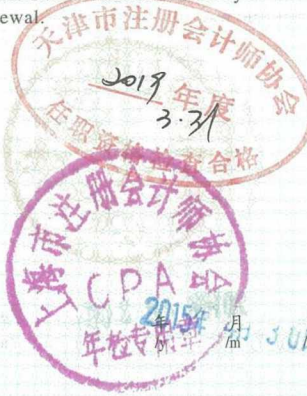 ewal.
天津市注册会计师协会
2019 年度
3.31
任职资格检查合格
上海市注册会计师协会
CPA
2015年 月
/m
年检专用章